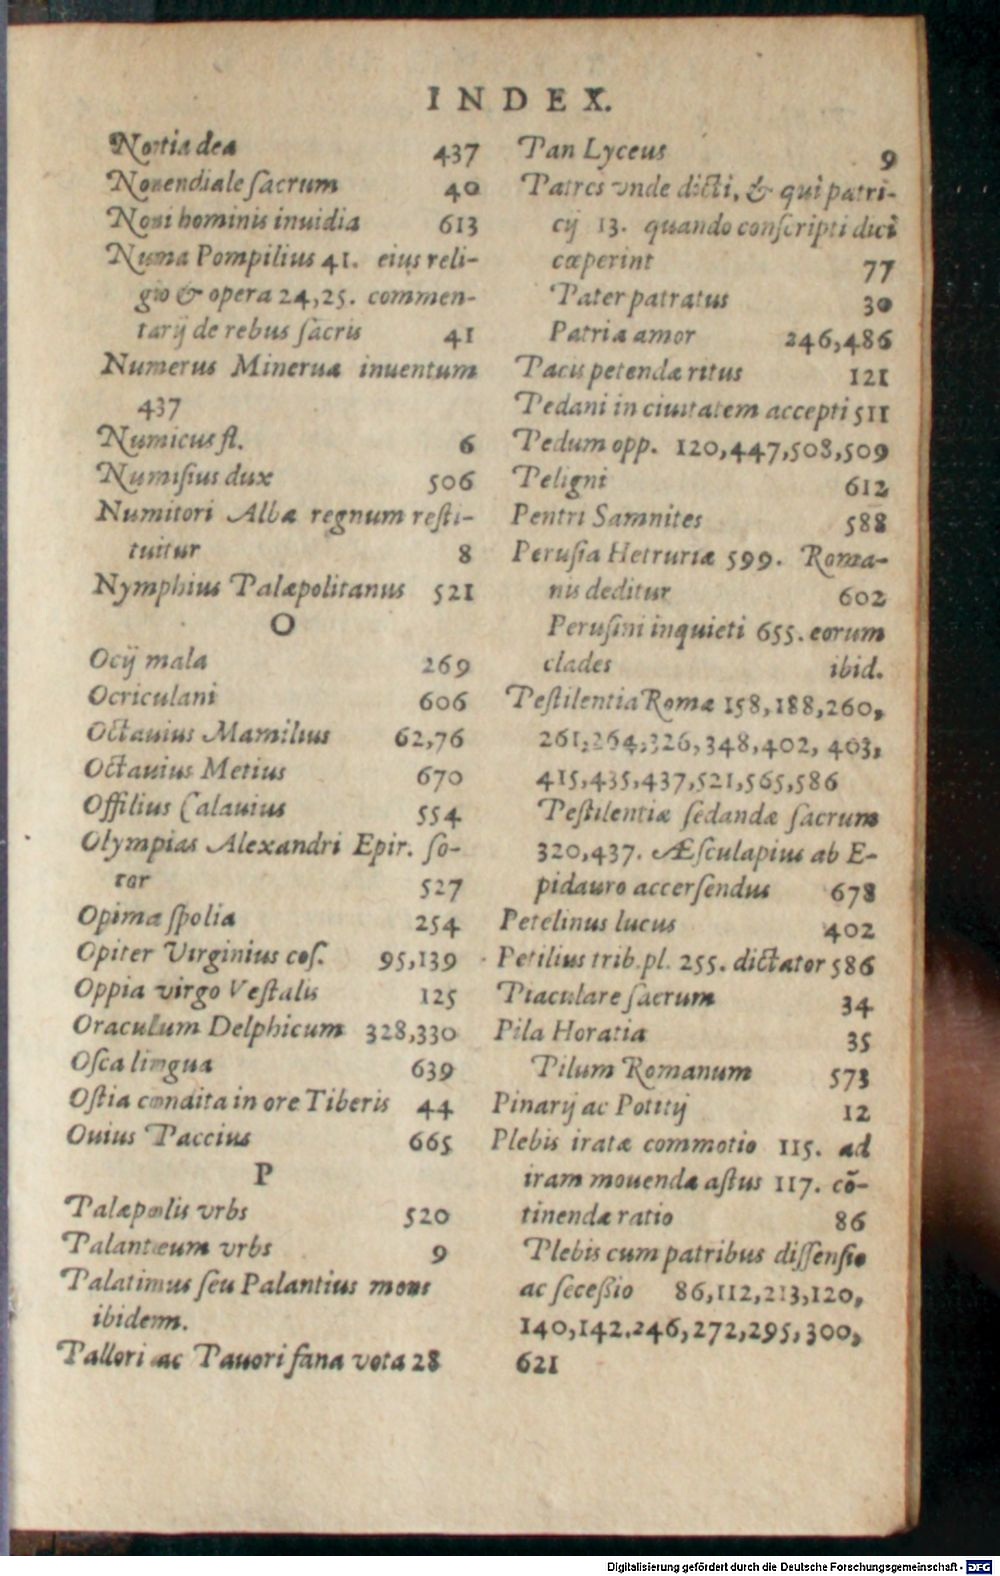 INDEX.
Nortia dea 437
Nouendiale ſacrum 40
Noui hominis inuidia 613
Numa Pompilius 41. eius reli-
gio & opera 24,25. commen-
tarij de rebus ſacris 41
Numerus Mineruæ inuentum
437
Numicus fl. 6
Numiſius dux 506
Numitori Albæ regnum reſti-
tuitur 8
Nymphius Palæpolitanus 521
O
Ocij mala 269
Ocriculani 606
Octauius Mamilius 62,76
Octauius Metius 670
Offilius Calauius 554
Olympias Alexandri Epir. ſo-
ror 527
Opima ſpolia 254
Opiter Virginius coſ. 95,139
Oppia virgo Veſtalis 125
Oraculum Delphicum 328,330
Oſca lingua 639
Oſtia condita in ore Tiberis 44
Ouius Paccius 665
P
Palæpolis vrbs 520
Palantæum vrbs 9
Palatinus ſeu Palantius mons
ibidem.
Pallori ac Pauori fana vota 28
Pan Lyceus 9
Patres vnde dicti, & qui patri-
cij 13. quando conſcripti dici
cœperint 77
Pater patratus 30
Patriæ amor 246,486
Pacis petendæ ritus 121
Pedani in ciuitatem accepti 511
Pedum opp. 120,447,508,509
Peligni 612
Pentri Samnites 588
Peruſia Hetruriæ 599. Roma-
nis deditur 602
Peruſini inquieti 655. eorum
clades ibid.
Peſtilentia Romæ 158,188,260,
261,264,326,348,402, 403,
415,435,437,521,565,586
Peſtilentiæ ſedandæ ſacrum
320,437. Æſculapius ab E-
pidauro accerſendus 678
Petelinus lucus 402
Petilius trib.pl. 255. dictator 586
Piaculare ſacrum 34
Pila Horatia 35
Pilum Romanum 573
Pinarij ac Potitij 12
Plebis iratæ commotio 115. ad
iram mouendæ aſtus 117. cõ-
tinendæ ratio 86
Plebis cum patribus diſſenſio
ac ſeceßio 86,112,213,120,
140,142.246,272,295,300,
621
Digitalisierung gefördert durch die Deutsche Forschungsgemeinschaft - DFG